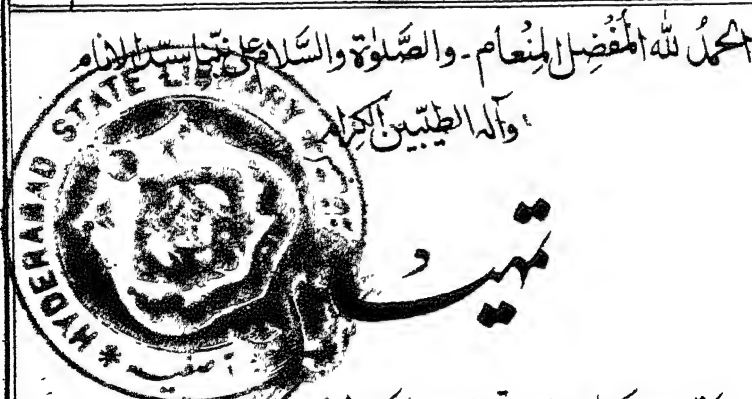 الحمدُ للّٰه المُفْضِل المِنْعام ۔ والصَّلوٰة والسَّلام علیٰ نبیّنا سیّد الانام
وآلہ الطیّبین الکِرام
HYDERABAD STATE LIBRARY
آصفیہ
تمہید